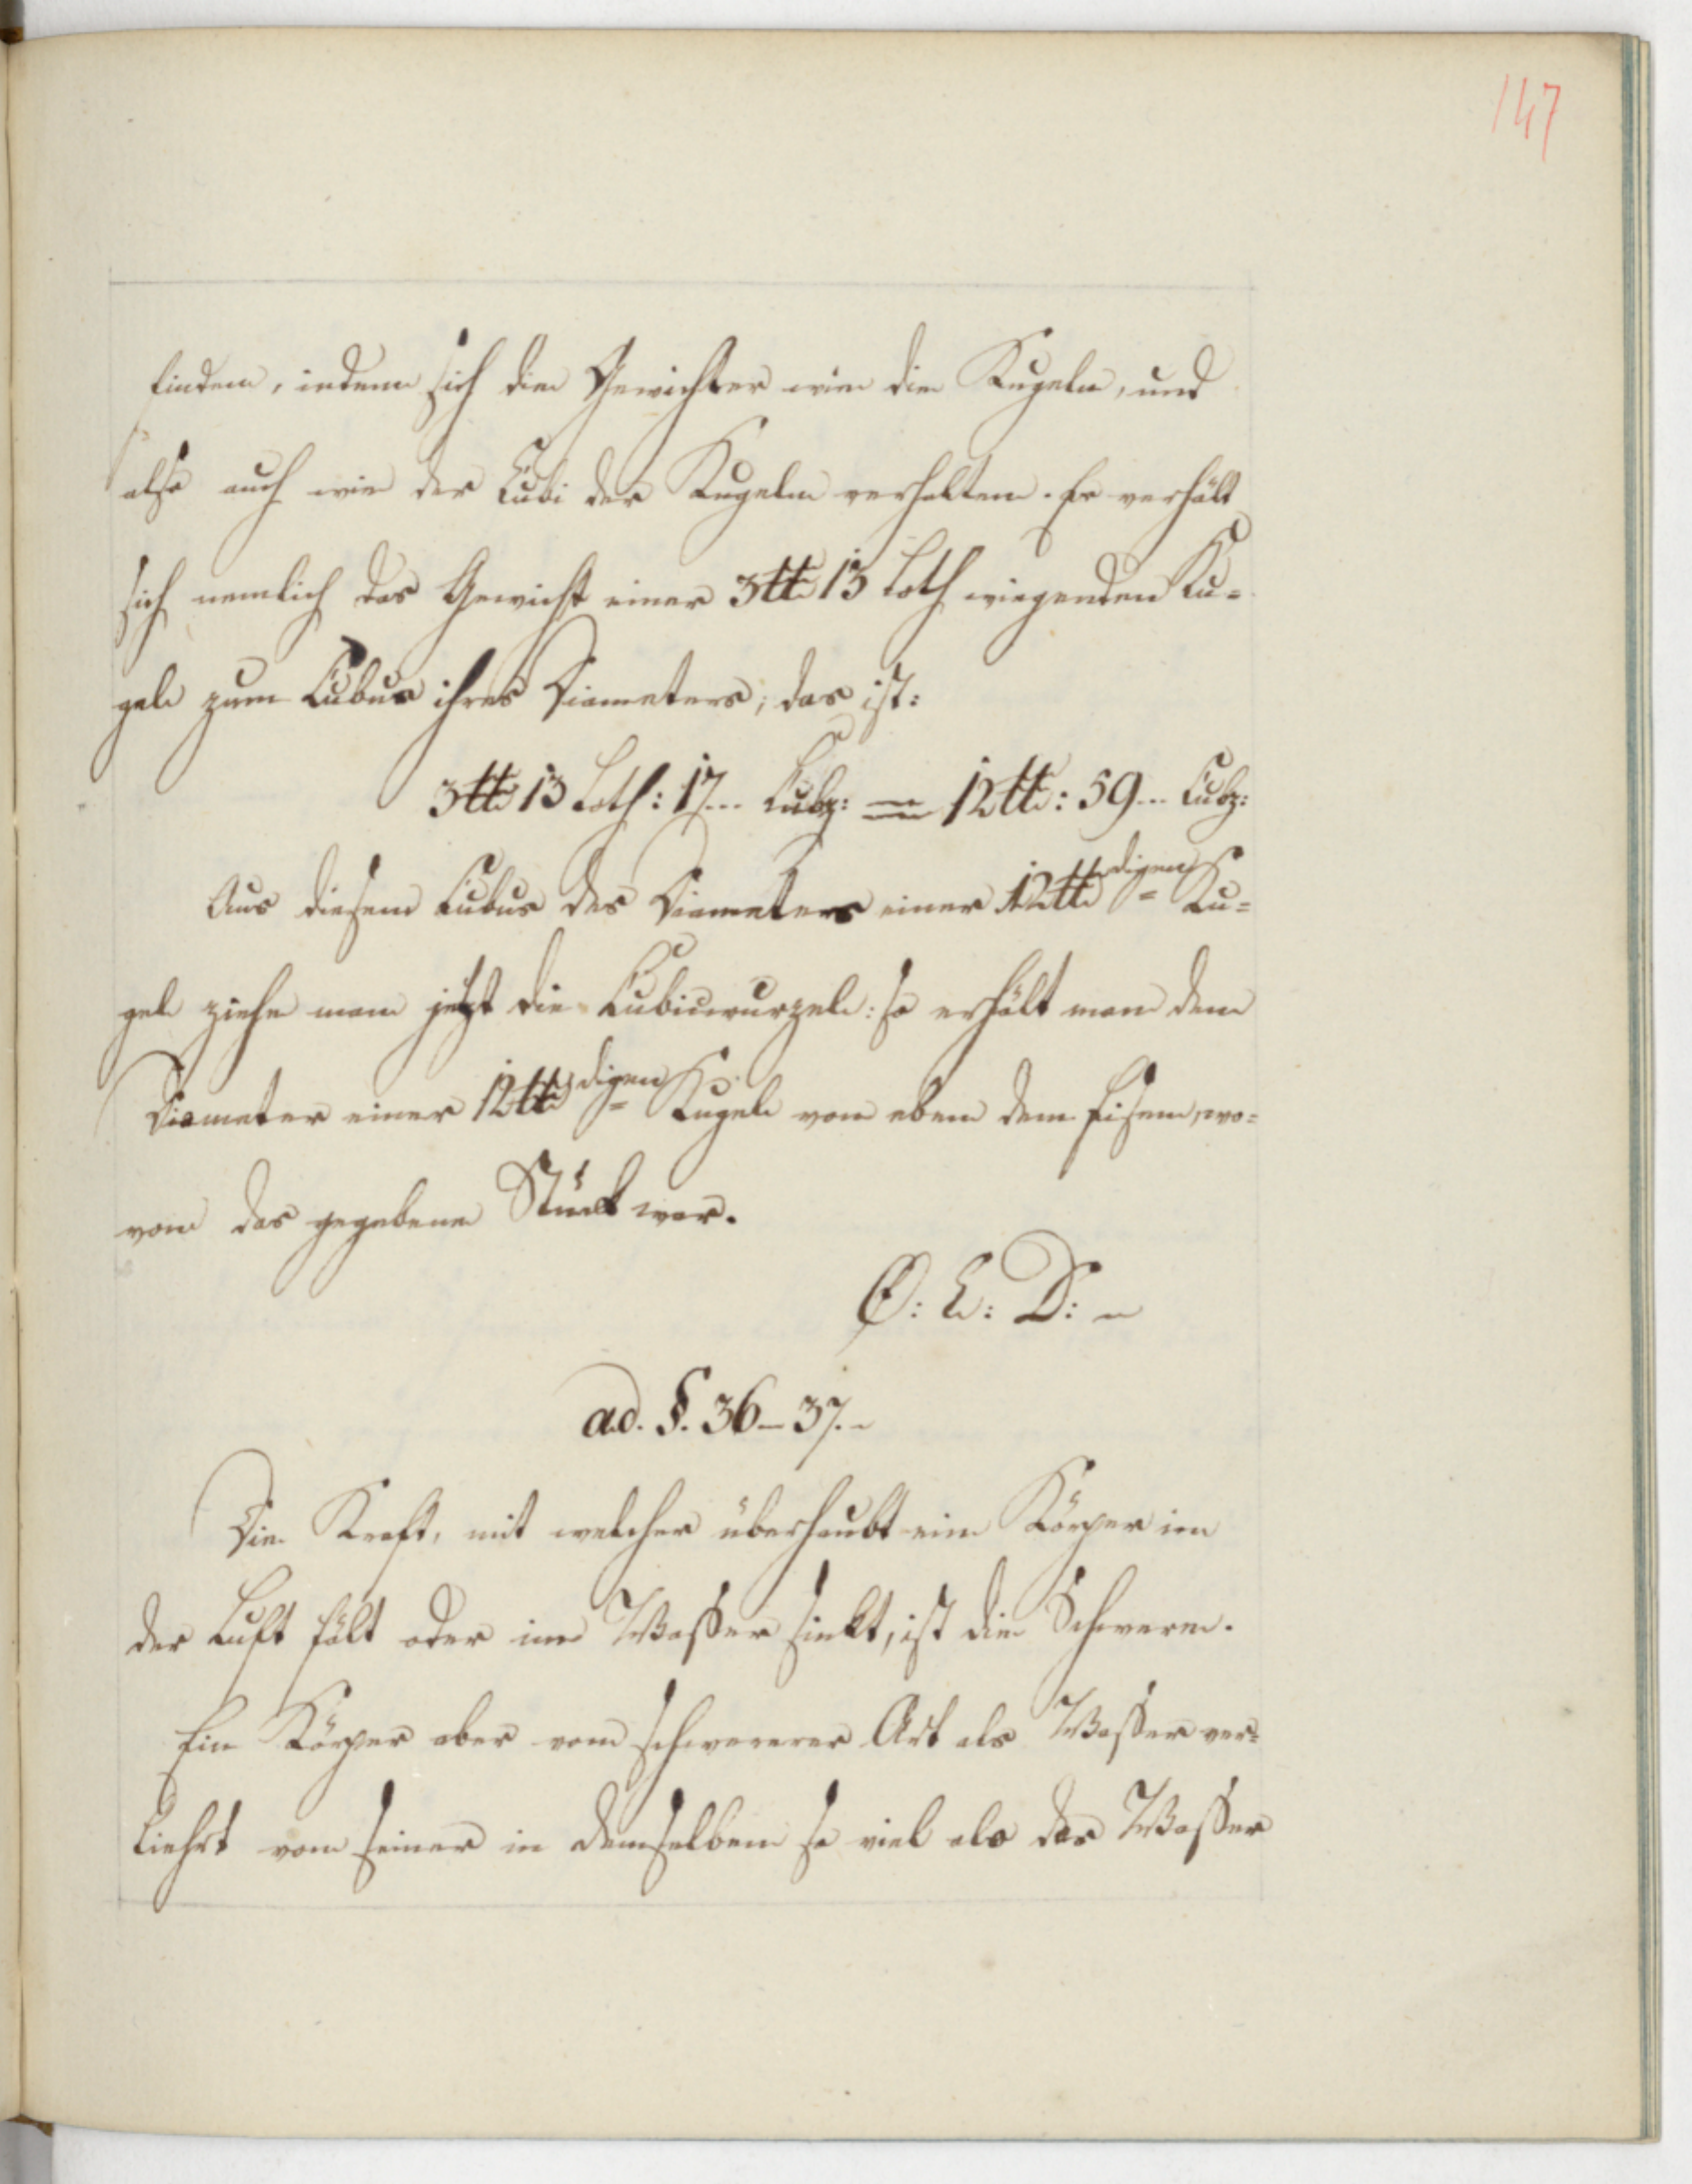 147
finden, indem sich die Gewichter wie die Kugeln, und
also auch wie der Cubi der Kugeln verhalten. Es verhält
sich nemlich das Gewicht einer 3 ℔ 13 Loth wiegenden Ku=
gel zum Cubus ihres Diameters; das ist:
3 ℔ 13 Loth : 17... Cubz: = 12 ℔ : 59... Cubz:
Aus diesem Cubus des Diameters einer 12 ℔digen Ku=
gel ziehe man jetzt die Cubicwurzel: so erhält man den
Diameter einer 12 ℔digen Kugel von eben dem Eisen, wo=
von das gegebene Stück war.
Q: E: D:
ad. §. 36 – 37.
Die Kraft, mit welcher überhaubt ein Körper in
der Luft fält oder im Wasser sinkt, ist die Schwere.
Ein Körper aber von schwererer Art als Wasser ver=
liehrt von seiner in demselben so viel als das Wasser